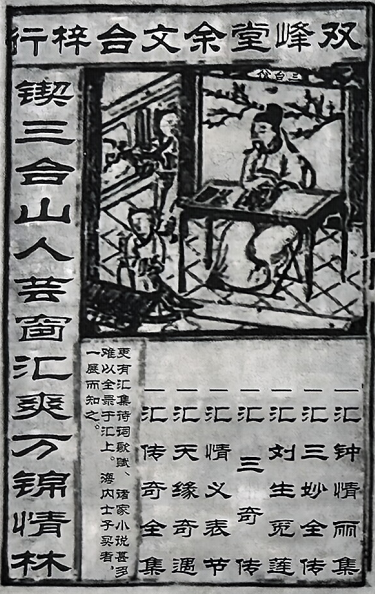 双峰堂余文台梓行
一汇钟情丽集
一汇三妙全传
一汇刘生觅莲
一汇三奇传
一汇情义表节
一汇天缘奇遇
一汇传奇全集
更有汇集诗词歌赋、诸家小说甚多
难以全录于汇上。海内士子买者，
一展而知之。
锲三台山人芸窗汇爽万锦情林